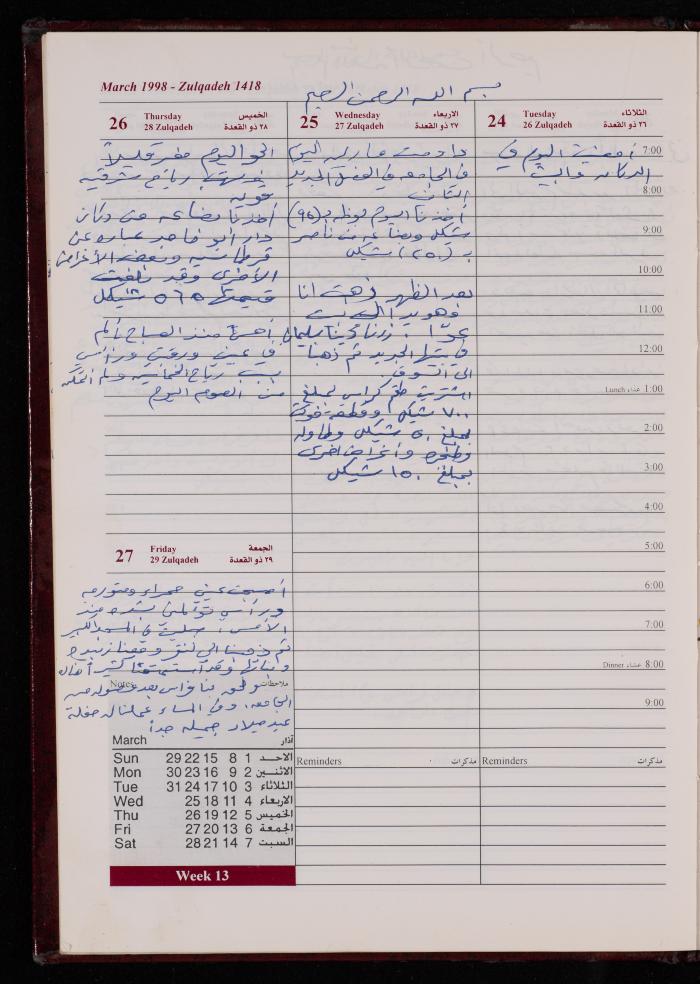 March 1998 - Zulqadeh 1418
بسم الله الرحمن الرحيم
24 Tuesday الثلاثاء
26 Zulqadeh ٢٦ ذو القعدة
أمضيت اليوم في
الدكان والبيت
7:00
8:00
9:00
10:00
11:00
12:00
Lunch غداء 1:00
2:00
3:00
4:00
5:00
6:00
7:00
Dinner عشاء 8:00
9:00
Reminders مذكرات
25 Wednesday الاربعاء
27 Zulqadeh ٢٧ ذو القعدة
داومت اليوم
في الجامعة في الفصل الجديد
الثاني
أخذنا اليوم بوظه بـ (٩٦)
شيكل وبضاعة من ناصر
بـ (٢٥٠) شيكل
بعد الظهر ذهبت أنا
وهويدا الى بيت
عوّا: زرنا سليمان
في بيتها الجديد ثم ذهبنا
الى السوق
اشتريت طقم كراسي بمبلغ
٧٠٠ شيكل وقطعة
بمبلغ ٥٠ شيكل وطاولة
وأغراض أخرى
بمبلغ ١٥٠ شيكل
Reminders مذكرات
26 Thursday الخميس
28 Zulqadeh ٢٨ ذو القعدة
الجو اليوم مغبر قليلاً
رياح شرقية
قوية
أخذنا بضاعة من دكان
دار أبو ماجد عبارة عن
قرطاسية وبعض الأغراض
الأخرى وقد بلغت
قيمتها ٥٦٥ شيكل
أحس منذ الصباح بألم
في عيني ورقبتي ورأسي
بسبب رياح الخماسينية ولم أتمكن
من الصوم اليوم
27 Friday الجمعة
29 Zulqadeh ٢٩ ذو القعدة
أصبحت عيني حمراء ومتورمة
ورأسي تؤلمني بشدة منذ
الأمس، صليت في المسجد الكبير
ثم ذهبنا الى
وبناتها وقد استمتعنا كثيراً هناك
Notes ملاحظات
ولحق بنا فراس بعد وصوله من
الجامعة. وفي المساء عملنا له حفلة
عيد ميلاد جميلة جداً
March آذار
Sun 29 22 15 8 1 الاحـد
Mon 30 23 16 9 2 الاثنـين
Tue 31 24 17 10 3 الثلاثاء
Wed 25 18 11 4 الاربعاء
Thu 26 19 12 5 الخميس
Fri 27 20 13 6 الجمعة
Sat 28 21 14 7 السبت
Week 13